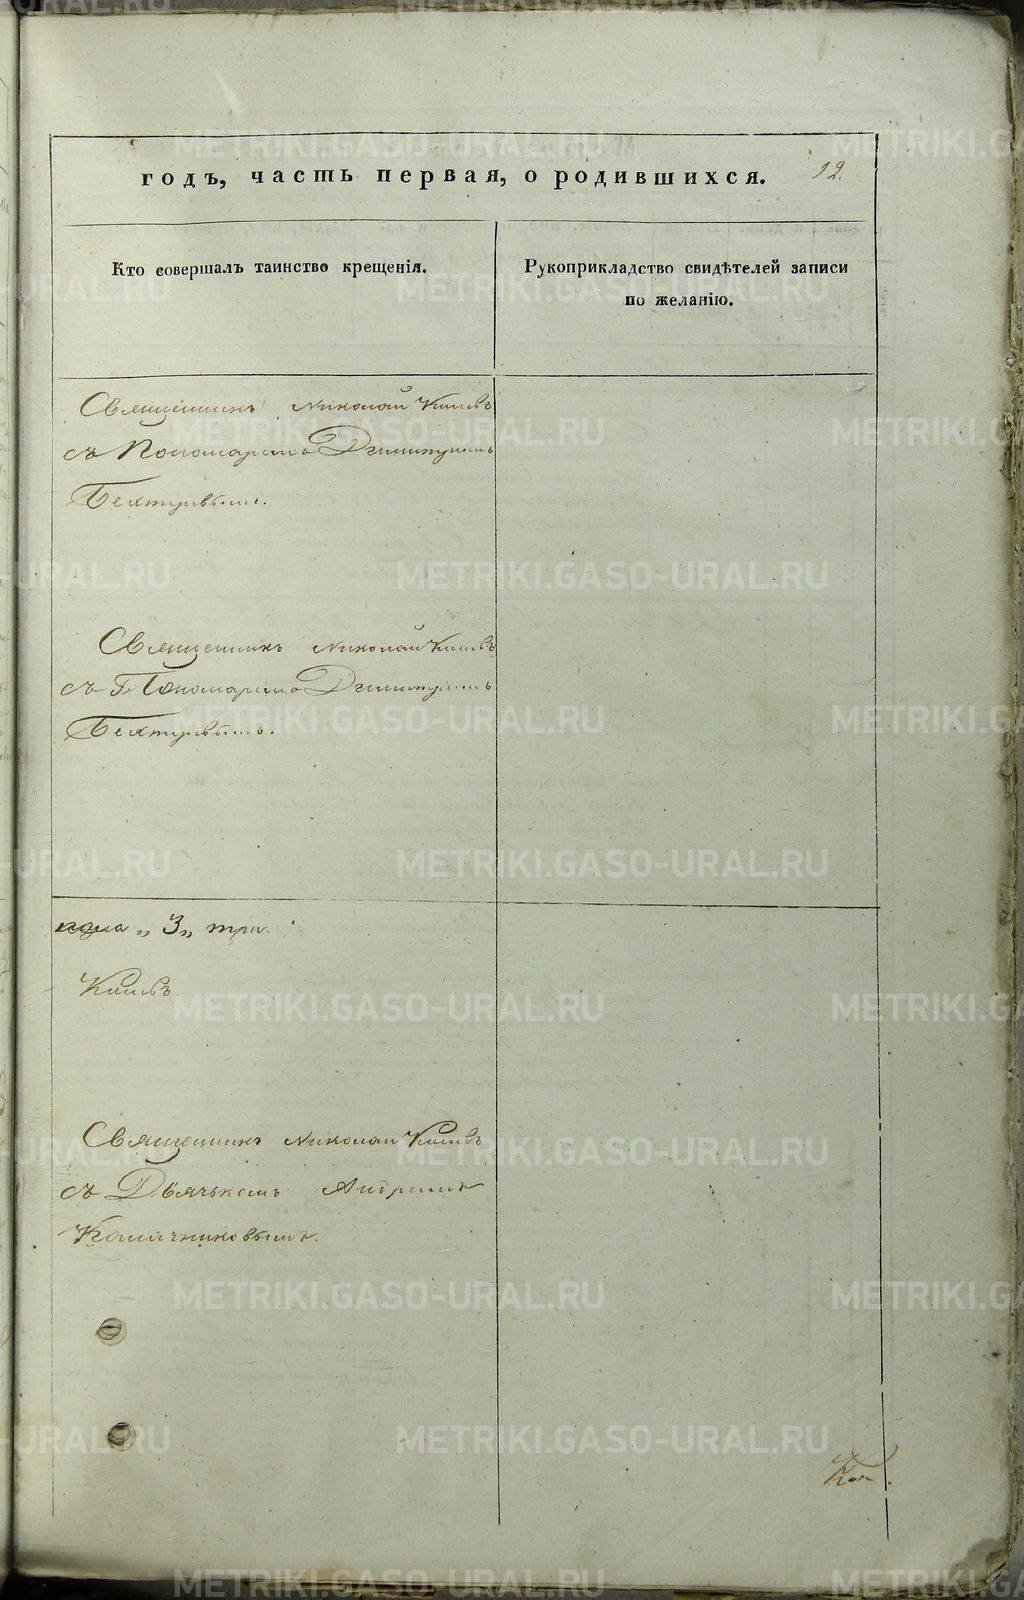 годъ, часть первая, о родившихся. 12.
Кто совершалъ таинство крещенія.
Рукоприкладство свидѣтелей записи
по желанію.
Священникъ Николай
съ Пономаремъ Димитріемъ
Бехтеревымъ.
Священникъ Николай
съ Пономаремъ Димитріемъ
Бехтеревымъ.
пола „3„ три.
Священникъ Николай
съ Дьячкомъ Андреемъ
Калачниковымъ.
METRIKI.GASO-URAL.RU